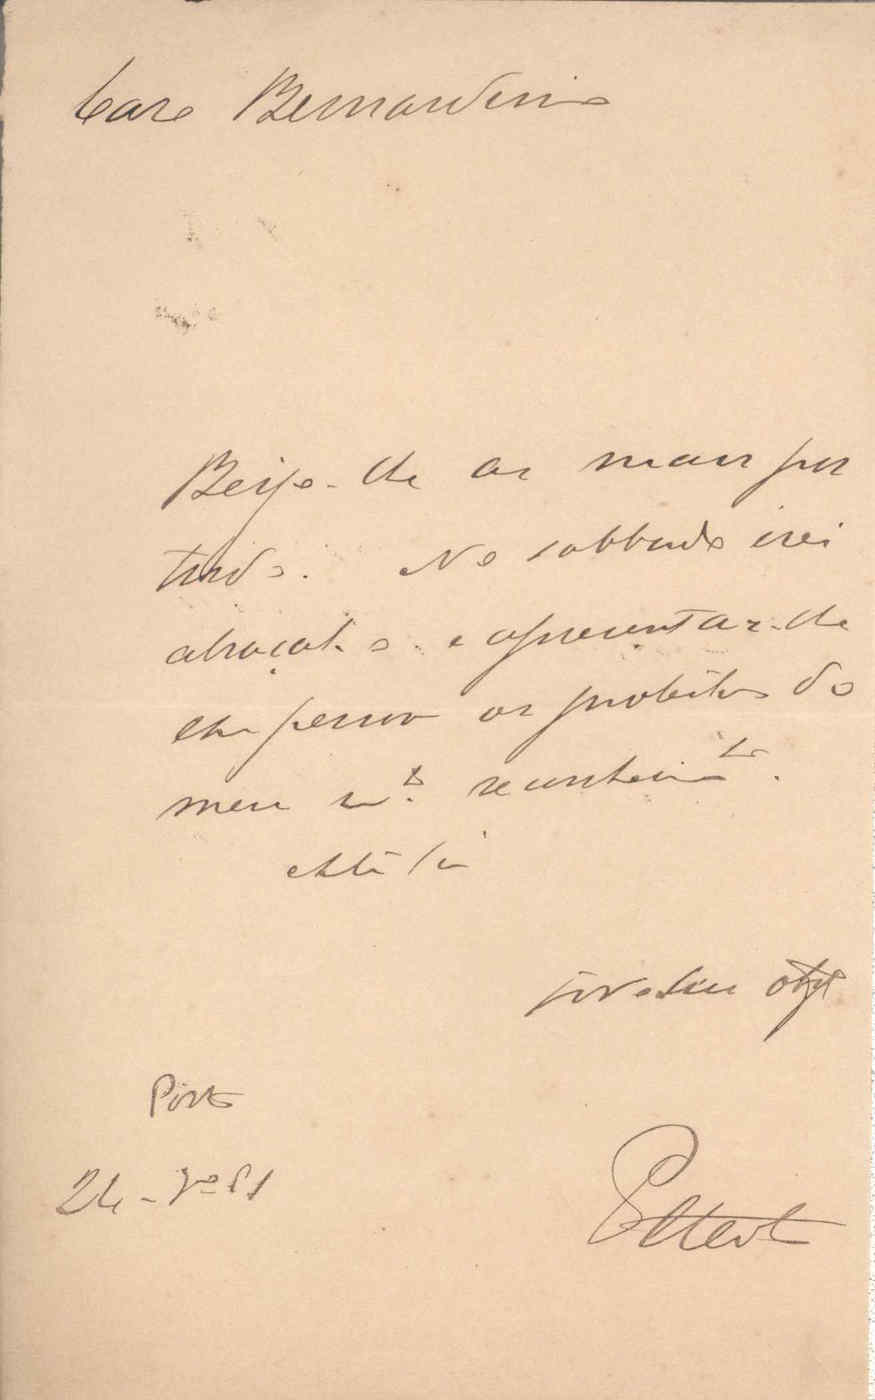 Caro Bernardino
Beijo-lhe as mãos por
tudo. No sabbado irei
abraçal-o e apresentar-lhe
em pessoa os protestos do
meu m.to reconhecim.to.
Até lá
Porto
24-